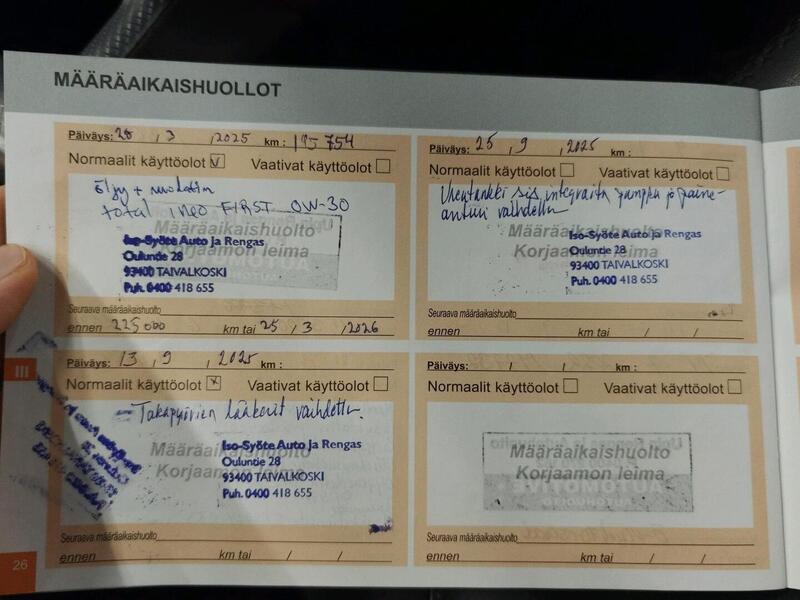 MÄÄRÄAIKAISHUOLLOT
Päiväys: 28 , 3 , 2025 km : 195 754
Normaalit käyttöolot v Vaativat käyttöolot
öljy +
total ineo FIRST 0W-30
Määräaikaishuolto
Korjaamon leima
Iso-Syöte Auto ja Rengas
Ouluntie 28
93400 TAIVALKOSKI
Puh. 0400 418 655
Seuraava määräaikaishuolto
ennen 225000 km tai 25 / 3 / 2026
Päiväys: 25 , 9 , 2025 km :
Normaalit käyttöolot Vaativat käyttöolot
sis. pumppu ja paine-
anturi vaihdettu
Määräaikaishuolto
Korjaamon leima
Iso-Syöte Auto ja Rengas
Ouluntie 28
93400 TAIVALKOSKI
Puh. 0400 418 655
Seuraava määräaikaishuolto
ennen km tai / /
III
Päiväys: 13 , 9 , 2025 km :
Normaalit käyttöolot x Vaativat käyttöolot
- Takapyörien laakerit vaihdettu.
Määräaikaishuolto
Korjaamon leima
Iso-Syöte Auto ja Rengas
Ouluntie 28
93400 TAIVALKOSKI
Puh. 0400 418 655
Seuraava määräaikaishuolto
ennen km tai / /
Päiväys: / / km :
Normaalit käyttöolot Vaativat käyttöolot
Määräaikaishuolto
Korjaamon leima
Seuraava määräaikaishuolto
ennen km tai / /
26